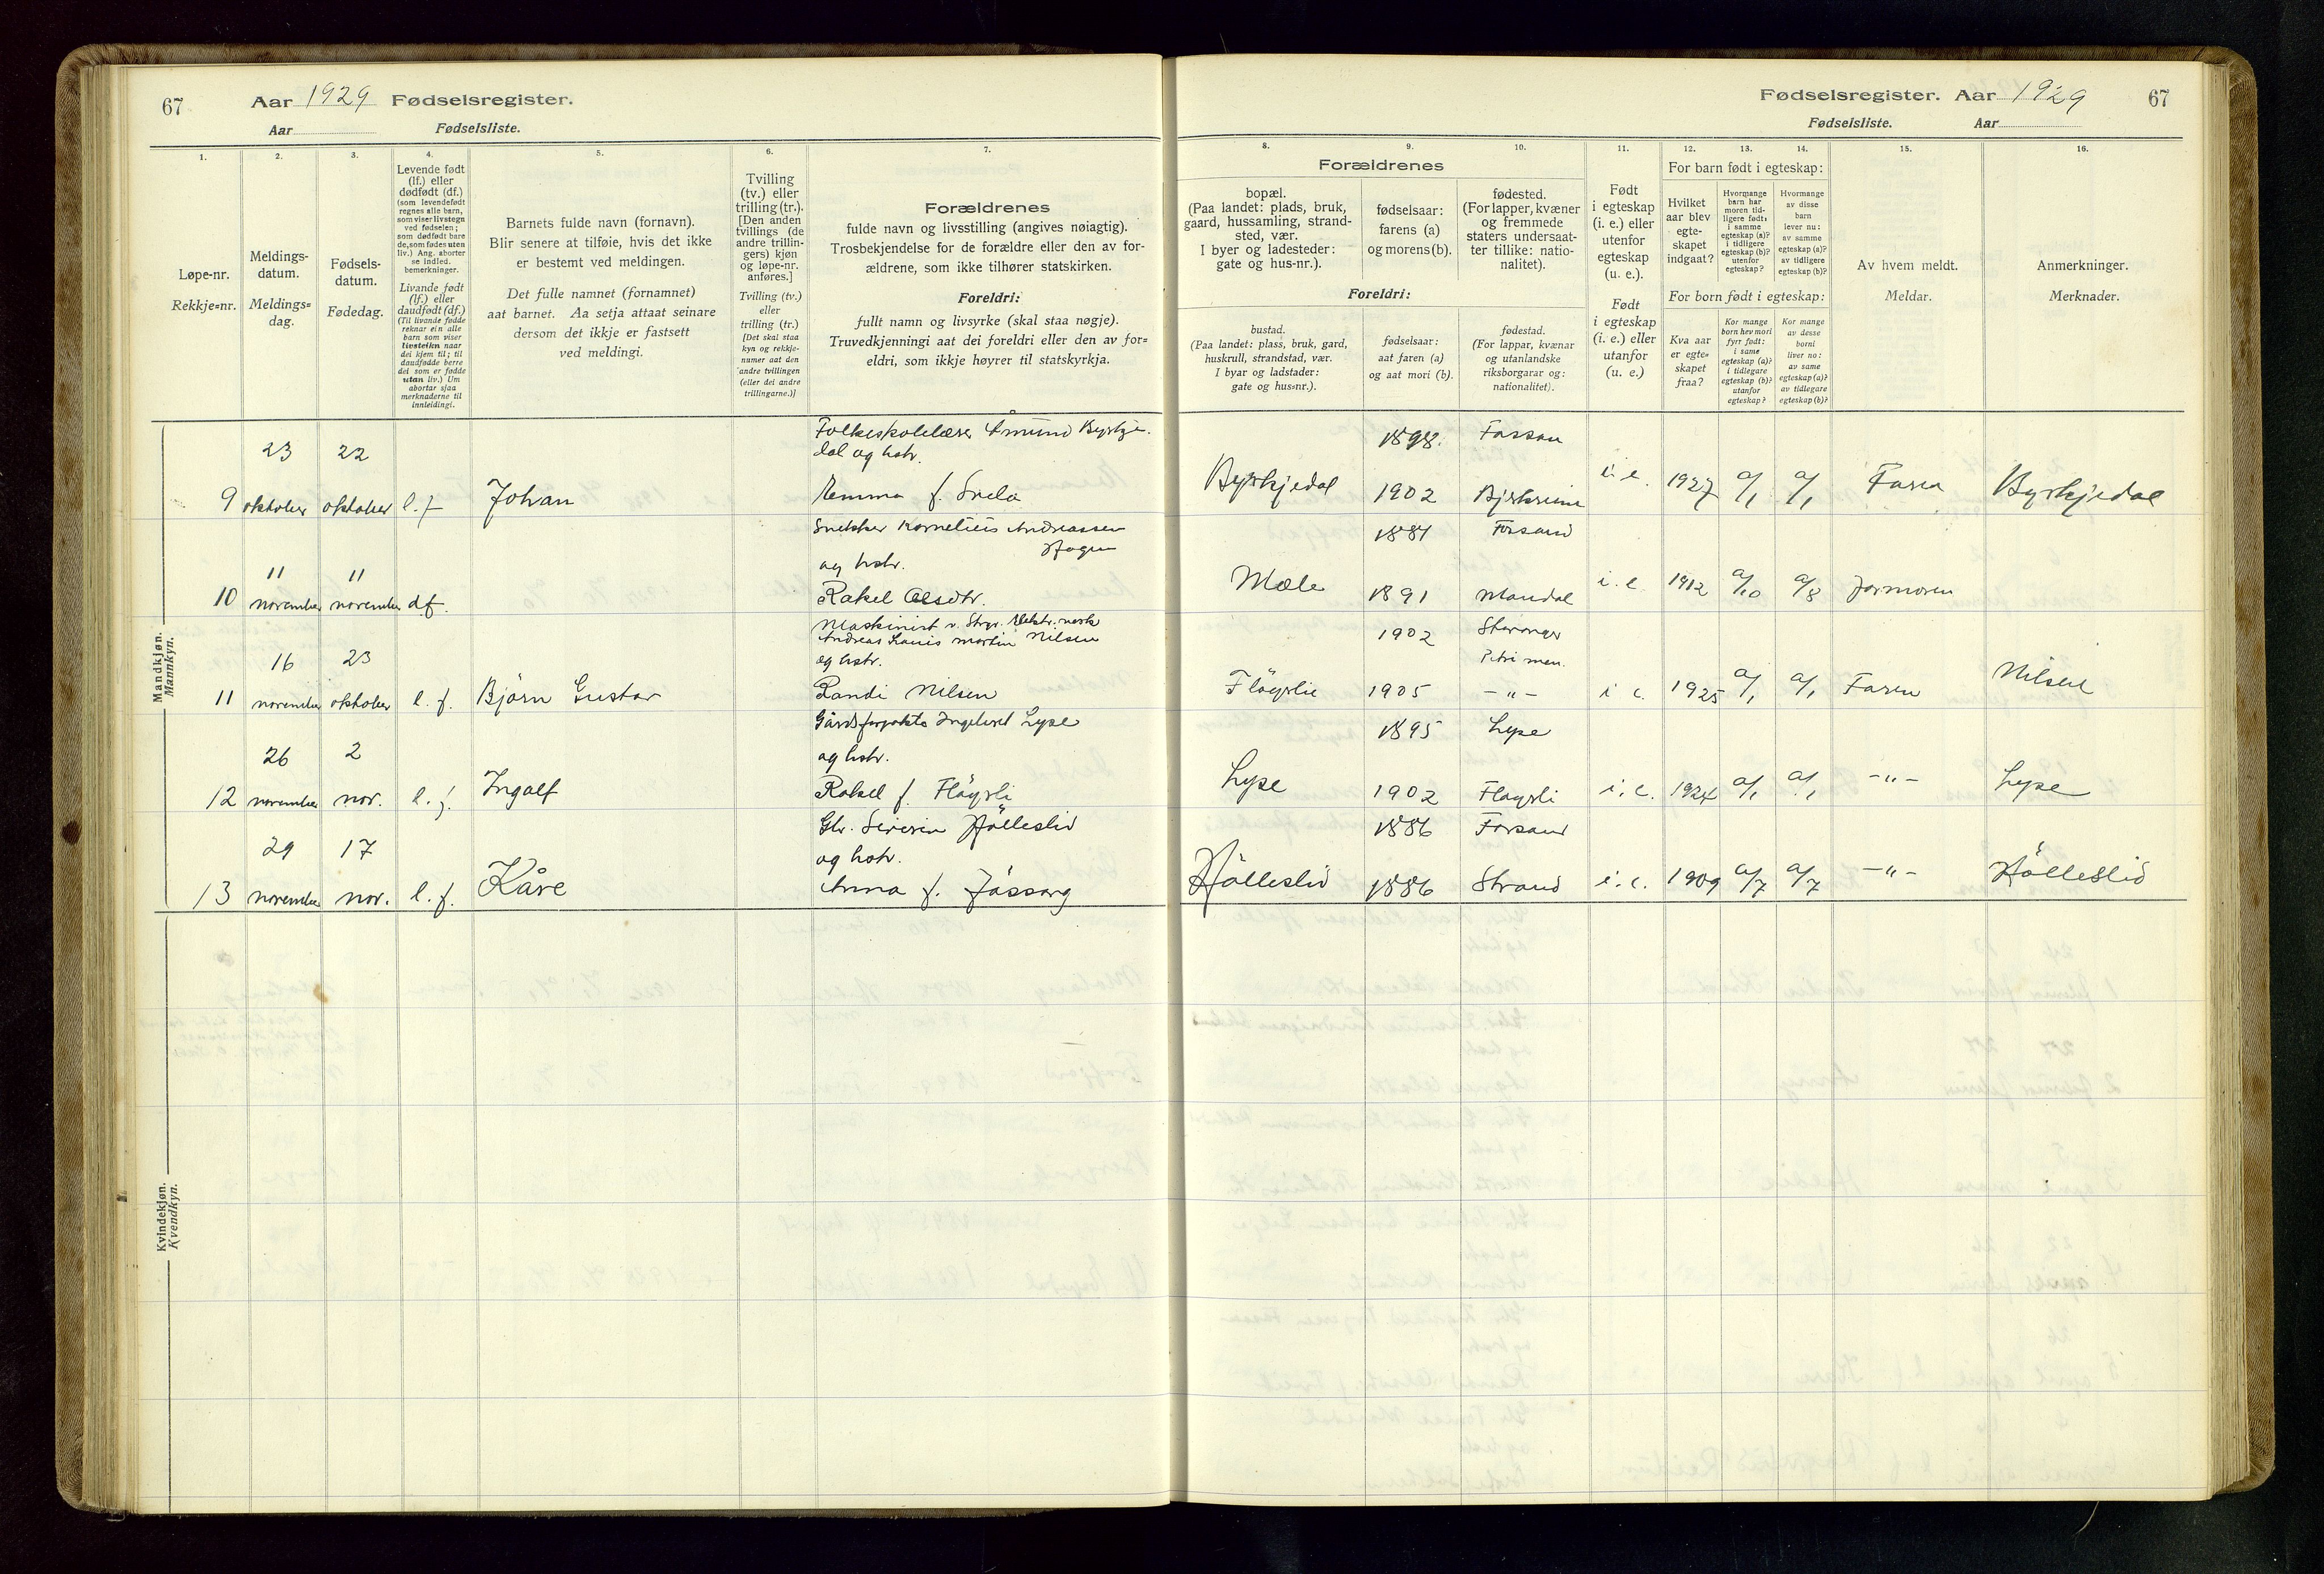 67 Aar 1929 Fødselsregister.
Aar Fødselsliste.
Fødselsregister. Aar 1929 67
Fødselsliste. Aar
1. 2. 3. 4. 5. 6. 7.
Løpe-nr.
Rekkje=nr.
Meldings-
datum.
Meldings=
dag.
Fødsels-
datum.
Fødedag.
Levende født
(lf.) eller
dødfødt (df.)
(som levendefødt
regnes alle barn,
som viser livstegn
ved fødselen;
som dødfødt bare
de, som fødes uten
liv.) Ang. aborter
se indled.
bemerkninger.
Livande født
(lf.) eller
daudfødt (df.)
(Til livande fødde
reknar ein alle
barn som viser
livsteikn naar
dei kjem til; til
daudfødde berre
dei som er fødde
utan liv.) Um
abortar sjaa
merknaderne til
innleidingi.
Barnets fulde navn (fornavn).
Blir senere at tilføie, hvis det ikke
er bestemt ved meldingen.
Det fulle namnet (fornamnet)
aat barnet. Aa setja attaat seinare
dersom det ikkje er fastsett
ved meldingi.
Tvilling
(tv.) eller
trilling (tr.).
[Den anden
tvillings (de
andre trillin-
gers) kjøn
og løpe-nr.
anføres.]
Tvilling (tv.)
eller
trilling (tr.)
[Det skal staa
kyn og rekkje-
numer aat den
andre tvillingen
(eller dei andre
trillingarne.)]
Forældrenes
fulde navn og livsstilling (angives nøiagtig).
Trosbekjendelse for de forældre eller den av for-
ældrene, som ikke tilhører statskirken.
Foreldri:
fullt namn og livsyrke (skal staa nøgje).
Truvedkjenningi aat dei foreldri eller den av for=
eldri, som ikkje høyrer til statskyrkja.
8. 9. 10. 11. 12. 13. 14. 15. 16.
Forældrenes
bopæl.
(Paa landet: plads, bruk,
gaard, hussamling, strand-
sted, vær.
I byer og ladesteder:
gate og hus-nr.).
fødselsaar:
farens (a)
og morens (b).
fødested.
(For lapper, kvæner
og fremmede
staters undersaat-
ter tillike: natio-
nalitet).
Foreldri:
bustad.
(Paa landet: plass, bruk, gard,
huskrull, strandstad, vær.
I byar og ladstader:
gate og hus=nr.).
fødselsaar:
aat faren (a)
og aat mori (b).
fødestad.
(For lappar, kvænar
og utanlandske
riksborgarar og:
nationalitet).
Født
i egteskap
(i. e.) eller
utenfor
egteskap
(u. e.).
Født
i egteskap
(i. e.) eller
utanfor
(u. e.)
For barn født i egteskap:
Hvilket
aar blev
egte-
skapet
indgaat?
Hvormange
barn har
moren tid-
ligere født,
i samme
egteskap (a)?
i tidligere
egteskap (b)?
utenfor
egteskap?
Hvormange
av disse
barn
lever nu:
av samme
egteskap (a)?
av tidligere
egteskap (b)?
For born født i egteskap:
Kva aar
er egte=
skapet
fraa?
Kor mange
born hev mori
fyrr født:
i same
egteskap (a)?
i tidlegare
egteskap (b)?
utanfor
egteskap?
Kor mange
av desse
borni
liver no:
av same
egteskap (a)?
av tidlegare
egteskap (b)?
Av hvem meldt.
Meldar.
Anmerkninger.
Merknader.
Mandkjøn.
Mannkyn.
Folkeskolelærer Åmund Byrkje-
23 22 dal og hstr. 1898. Fossan
9 oktober oktober l.f. Johan Emma f. Svela Byrkjedal 1902 Bjerkreim i. e. 1927 a/1 a/1 Faren Byrkjedal
Snekker Kornelius Andreassen
Hagen 1881 Forsand
11 11 og hstr.
10 november november df. Rakel Olsdtr. Mæle 1891 Mandal i. e 1912 a/10 a/8 Jormoren
Maskinist v. Stvgr. Elektr. verk
Andreas Louis Martin Nilsen 1902 Stavanger
16 23 og hstr. Petri men.
11 november oktober l. f. Björn Gustav Randi Nilsen Flöyrlie 1905 -"- i e. 1925 a/1 a/1 Faren Nilsen
Gårdsforpakter Ingebret Lyse 1895 Lyse
26 2 og hstr.
12 november nov. l. f. Ingolf Rakel f. Flöyrli Lyse 1902 Flöyrli i. e. 1924 a/1 a/1 -"- Lyse
Gbr. Severin Hölleslid 1886 Forsand
29 17 og hstr.
13 november nov. l. f. Kåre Anna f. Jössang Hölleslid 1886 Strand i. e. 1909 a/7 a/7 -"- Hölleslid
Kvindekjøn.
Kvendkyn.